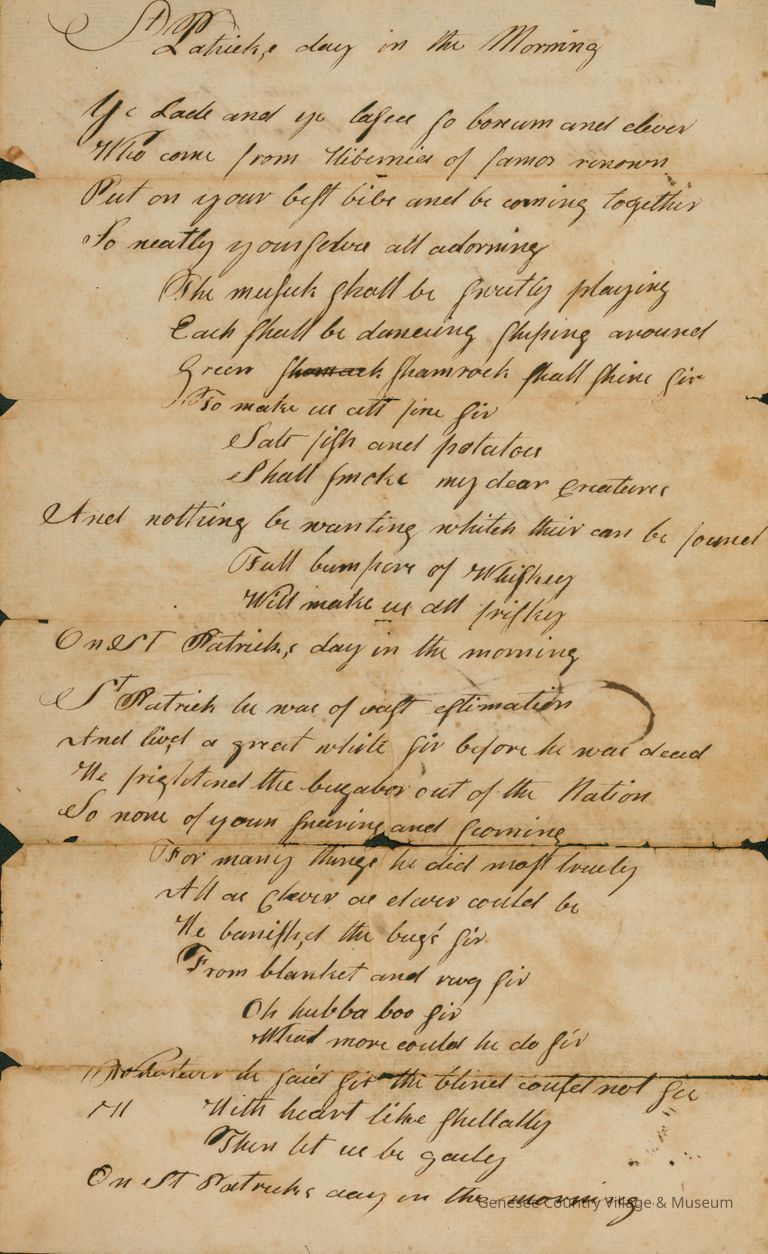 St Patrick,s day in the Morning
Ye Lads and ye lasses so boxum and clever
Who come from Hibernias of famos renown
Put on your best bibs and be coming together
So neatly yourselves all adorning
The musick shall be sweetly playing
Each shall be danceing skiping around
Green shamrock shall shine sir
To make us all fine sir
Salt fish and potatous
Shall smoke my dear creatures
And nothing be wanting whitch their can be found
Full bumpers of Whiskey
Will make us all friskey
On ST Patrick,s day in the morning
St Patrick he was of vast estimation
And lived a great while sir before he was dead
He frightend the bugabor out of the Nation
So none of your sneering and scorning
For many things he did most truely
All as Clever as clever could be
He banish,d the bug's sir
From blanket and rug sir
Oh hubba boo sir
What more could he do sir
Whatever he said sir the blind could not see
With heart like shellally
Then let us be gailey
On St Patricks day in the morning
Genesee Country Village & Museum